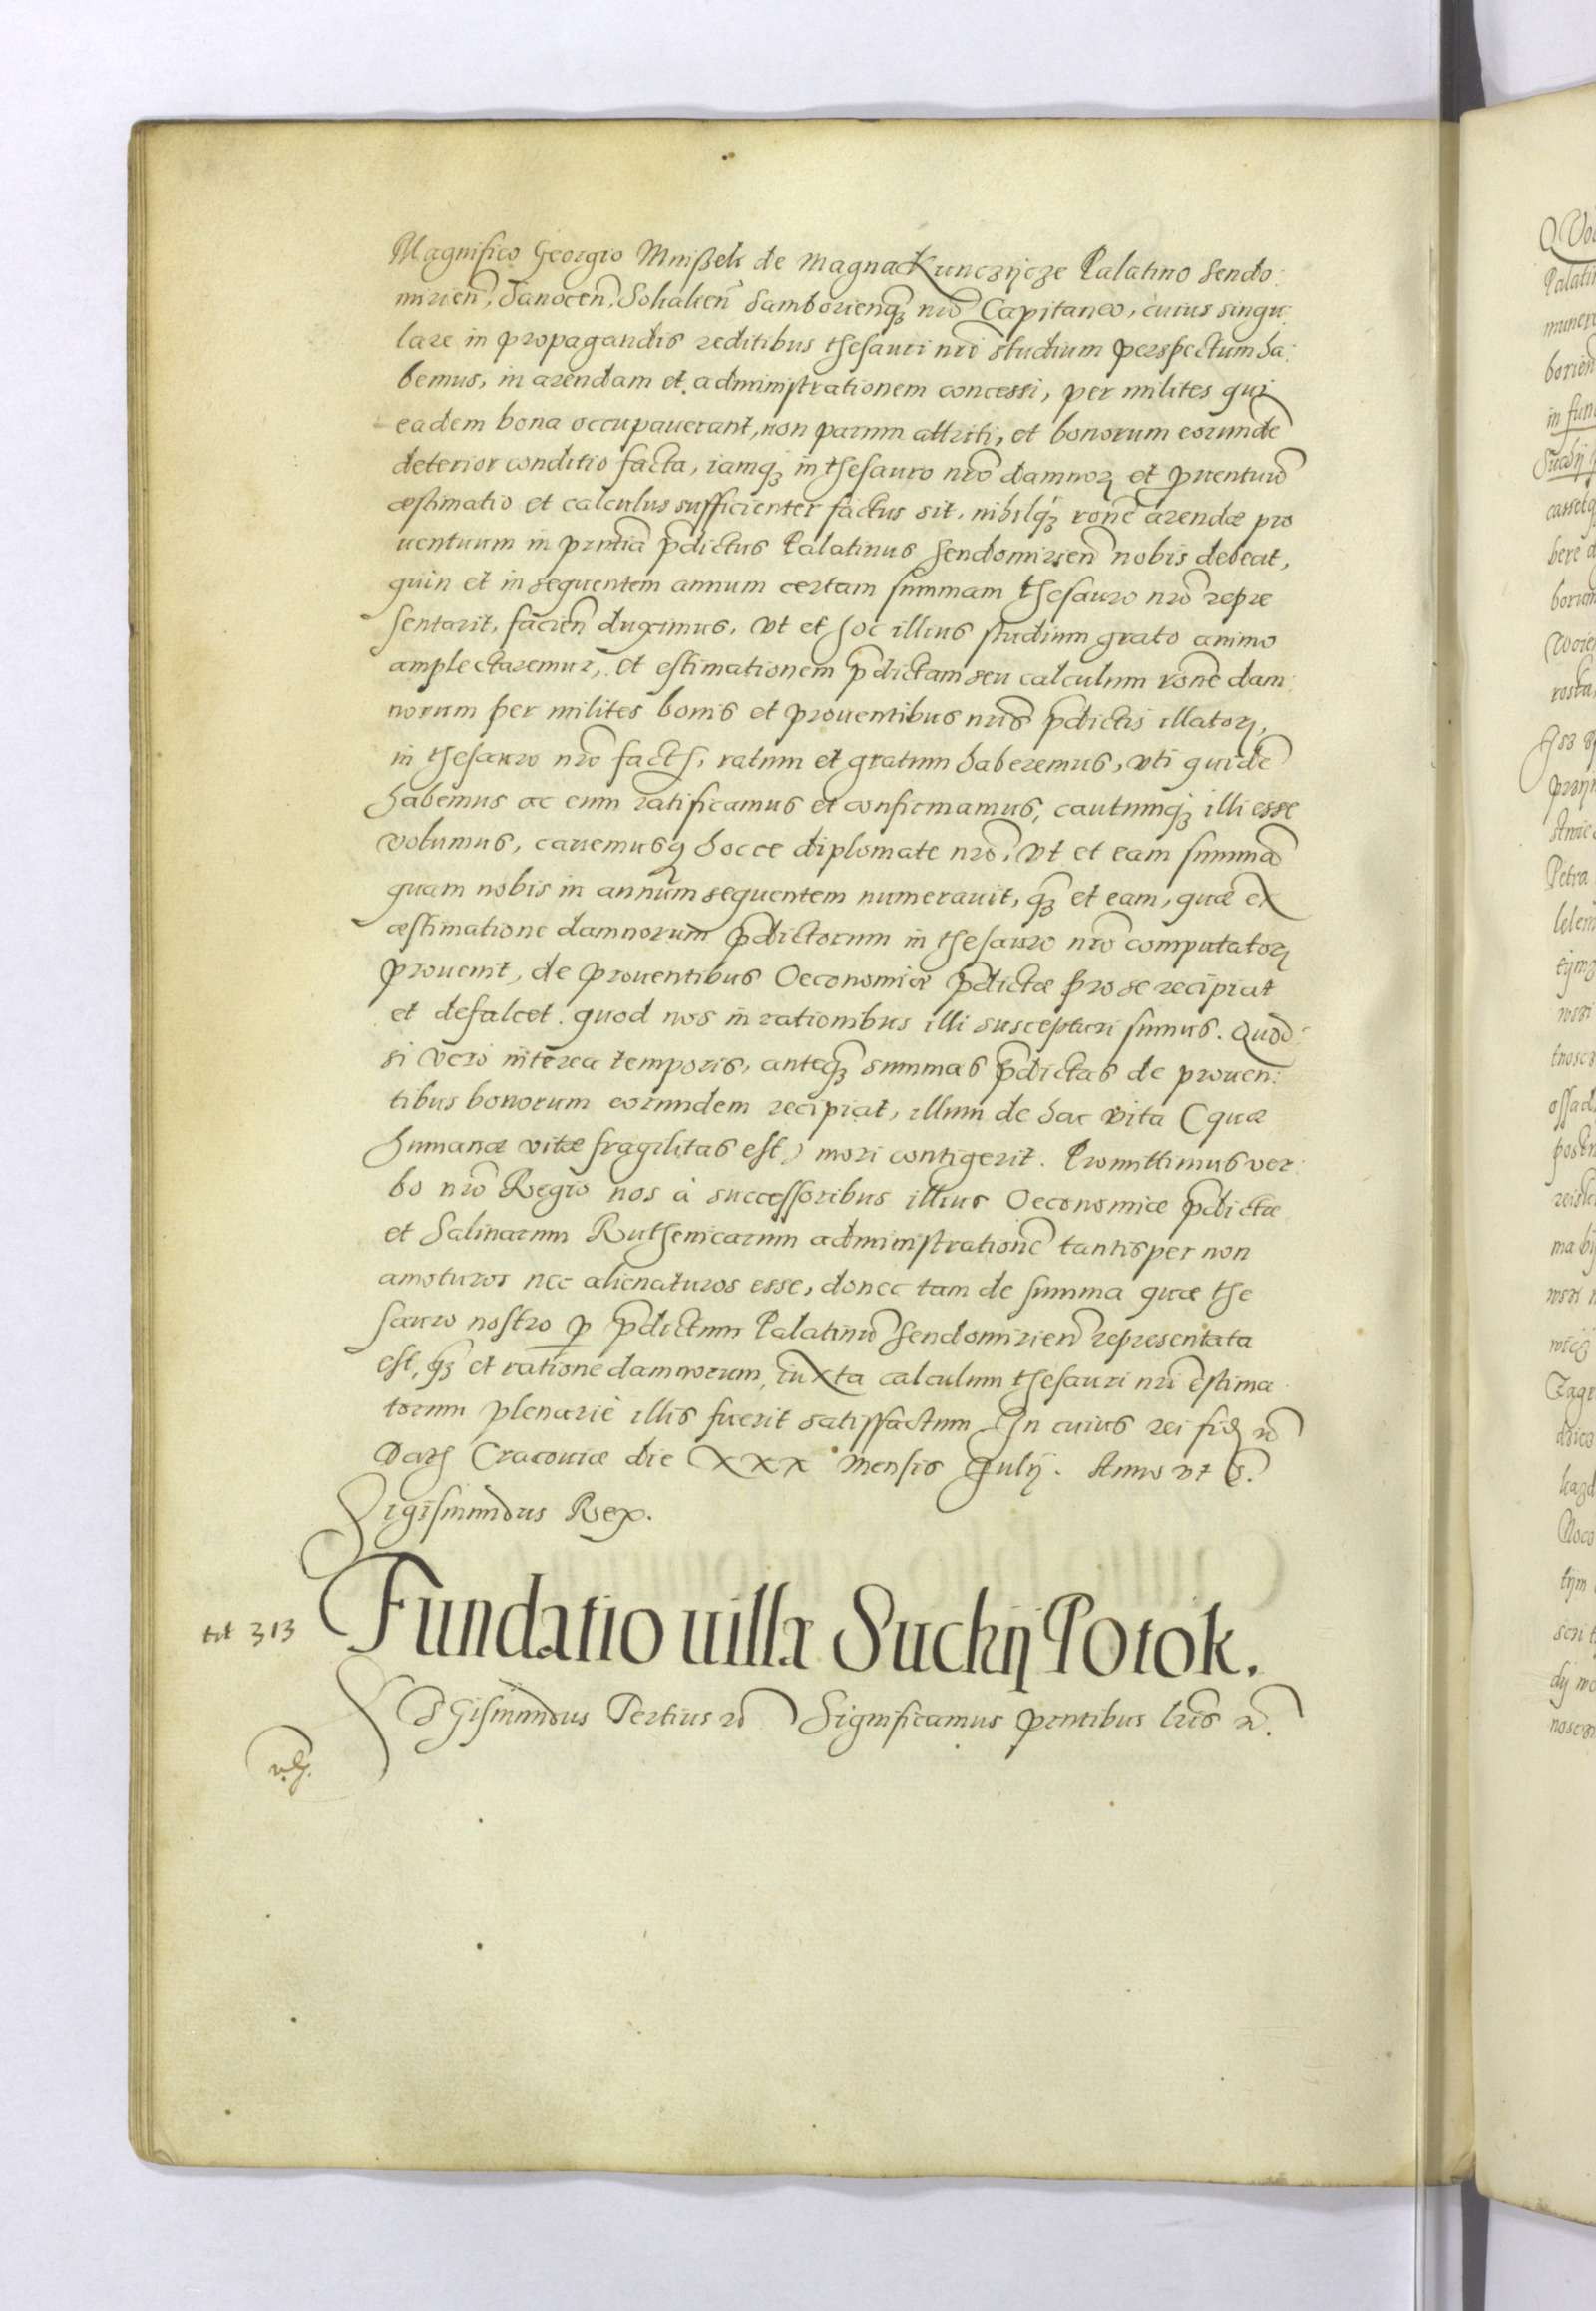 Magnifico Georgio Mnißek de Magna Kunczÿcze Palatino Sendo:
mirien̄, Sanocen̄, Sokalien̄ Samborienq̃ nr̄o Capitaneo, cuius singu:
lare in propagandis reditibus thesauri nr̄i studium perspectum ha:
bemus, in arendam et administrationem concessi, per milites qui
eadem bona occupauerant, non parum attriti, et bonorum eorundē
deterior conditio facta, iamq̃ in thesauro nr̄o damnoꝝ et ꝓuentuū
æstimatio et calculus sufficienter factus sit, nihilq̃ rōne arendæ pro
uentuum in prn̄tia p̄dictus Palatinus Sendomirien̄ nobis debeat,
quin et in sequentem annum certam summam thesauro nr̄o repræ
sentarit, facien̄ duximus, vt et hoc illius studium grato animo
amplectaremur, et estimationem p̄dictam seu calculum rōne dam:
norum per milites bonis et prouentibus nr̄is p̄dictis illatoꝝ,
in thesauro nr̄o facti, ratum et gratum haberemus, vti quidē
habemus ac eum ratificamus et confirmamus, cautumq̃ illi esse
volumus, cauemusq̃ hocce diplomate nr̄o, vt et eam summā
quam nobis in annum sequentem numerauit, q̃ et eam, quæ ex
æstimatione damnorum p̄dictorum in thesauro nr̄o computatoꝝ
prouenit, de prouentibus Oeconomiæ p̄dictæ pro se recipiat
et defalcet. quod nos in rationibus illi suscepturi sumus. Quod
si vero interea temporis, anteq̃ summas p̄dictas de prouen:
tibus bonorum eorundem recipiat, illum de hac vita (quæ
humanæ vitæ fragilitas est) mori contigerit. Promittimus ver:
bo nr̄o Regio nos à successoribus illius Oeconomiæ p̄dictæ
et Salinarum Ruthenicarum administrationē tantisper non
amoturos nec alienaturos esse, donec tam de summa quæ the
sauro nostro ꝑ p̄dictum Palatinū Sendomirien̄ representata
est, q̃ et ratione damnorum, iuxta calculum thesauri nr̄i estima
torum plenariè illis fuerit satisfactum. In cuius rei fid̄
Dat̄ Cracouiæ die XXX mensis Julÿ. Anno vt s̄.
Sigismundus Rex.
tit 313 Fundatio uillæ Suchÿ Potok.
Sigismundus Tertius Significamus prn̄tibus lr̄is